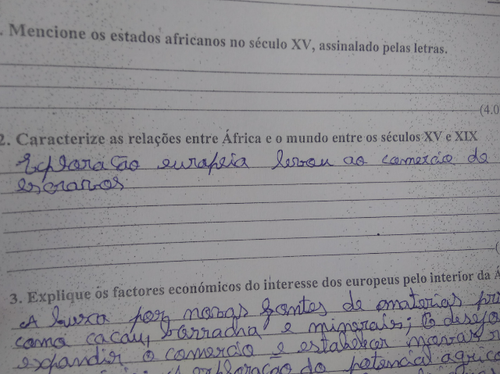 . Mencione os estados africanos no século XV, assinalado pelas letras.
(4.0
2. Caracterize as relações entre África e o mundo entre os séculos XV e XIX
Exploração europeia levou ao comercio de
escravos.
(
3. Explique os factores económicos do interesse dos europeus pelo interior da Á
A busca por novas fontes de materias pri
como cacau, borracha e minerais; O desejo
expandir o comercio e estabelecer
exploração do potencial agric